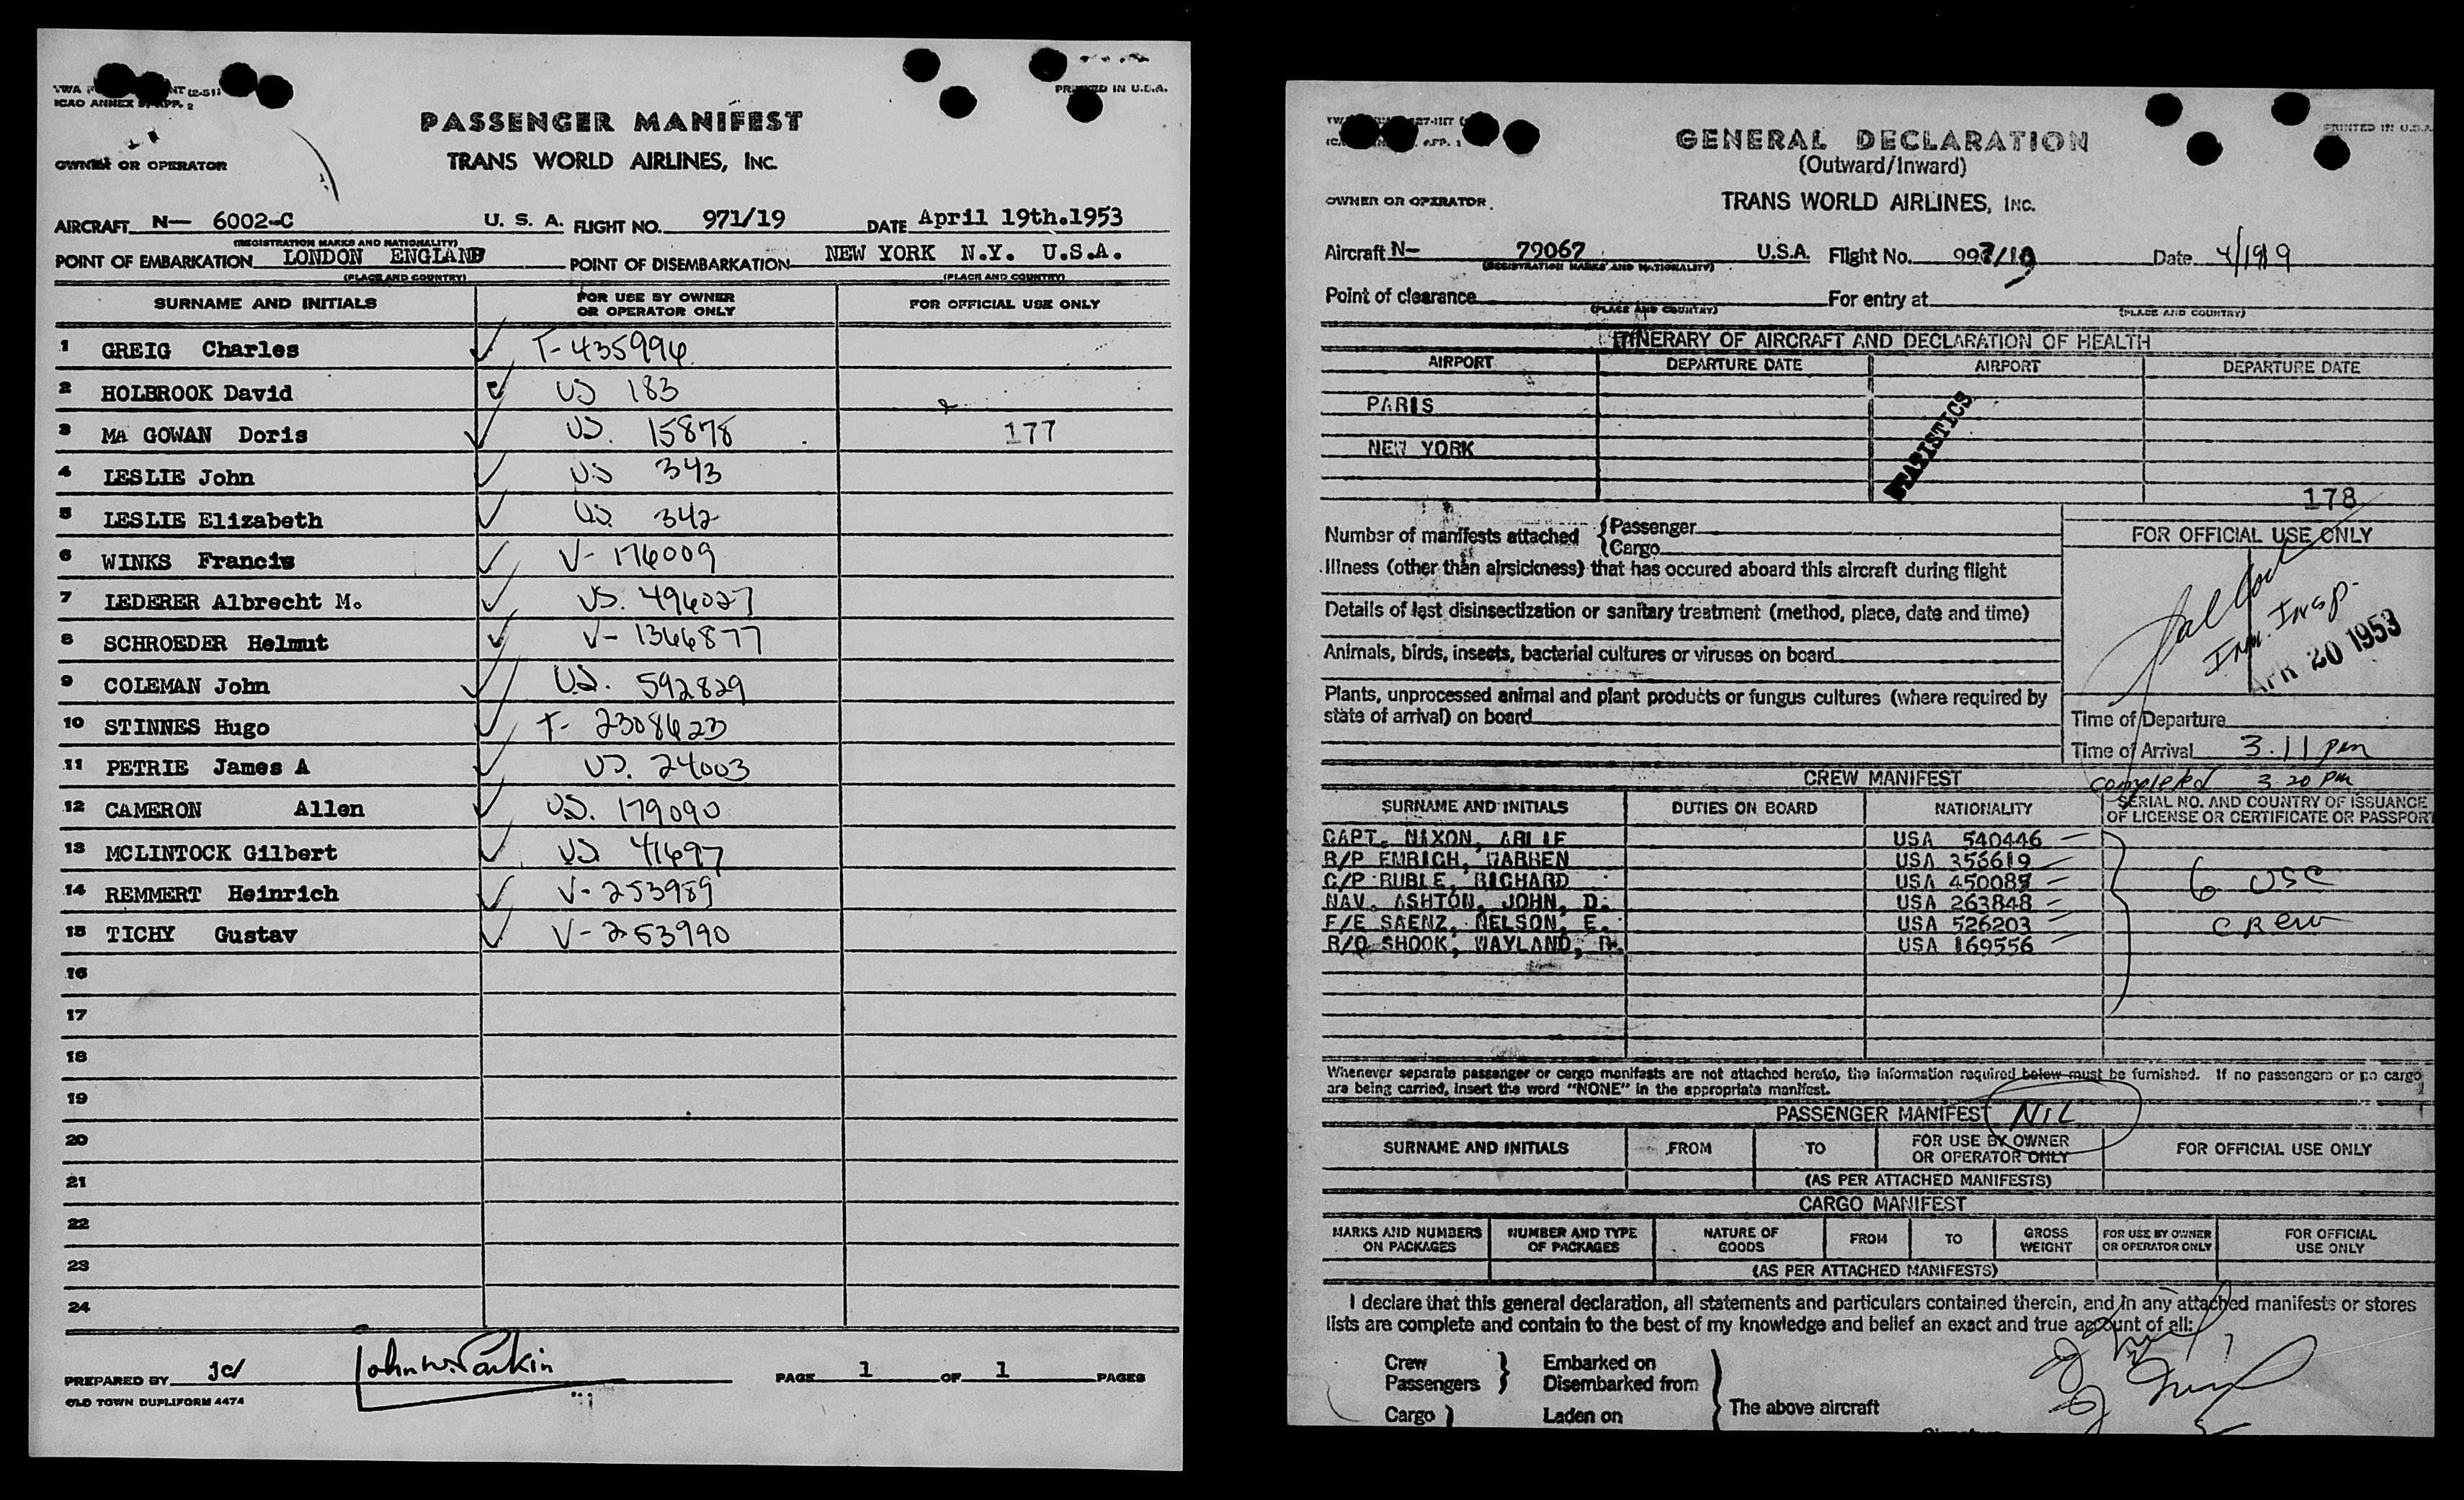 PRINTED IN U.S.A.
ICAO ANNEX 9 APP. 2
PASSENGER MANIFEST
OWNER OR OPERATOR
TRANS WORLD AIRLINES, INC.
AIRCRAFT N— 6002-C U. S. A. FLIGHT NO. 971/19 DATE April 19th.1953
(REGISTRATION MARKS AND NATIONALITY)
POINT OF EMBARKATION LONDON ENGLAND POINT OF DISEMBARKATION NEW YORK N.Y. U.S.A.
(PLACE AND COUNTRY) (PLACE AND COUNTRY)
SURNAME AND INITIALS FOR USE BY OWNER OR OPERATOR ONLY FOR OFFICIAL USE ONLY
1 GREIG Charles T-435996
2 HOLBROOK David US 183
3 MA GOWAN Doris US. 15878 177
4 LESLIE John US 343
5 LESLIE Elizabeth US 342
6 WINKS Francis V-176009
7 LEDERER Albrecht M. US. 496027
8 SCHROEDER Helmut V-1366877
9 COLEMAN John US. 592829
10 STINNES Hugo T- 2308623
11 PETRIE James A US. 24003
12 CAMERON Allen US. 179090
13 MCLINTOCK Gilbert US 41697
14 REMMERT Heinrich V-253989
15 TICHY Gustav V-253990
16
17
18
19
20
21
22
23
24
PREPARED BY jc John W. Parkin PAGE 1 OF 1 PAGES
OLD TOWN DUPLIFORM 4474
PRINTED IN U.S.A.
GENERAL DECLARATION
(Outward/Inward)
OWNER OR OPERATOR
TRANS WORLD AIRLINES, INC.
Aircraft N— 79067 U.S.A. Flight No. 997/19 Date 4/19
(REGISTRATION MARKS AND NATIONALITY)
Point of clearance For entry at
(PLACE AND COUNTRY) (PLACE AND COUNTRY)
ITINERARY OF AIRCRAFT AND DECLARATION OF HEALTH
AIRPORT DEPARTURE DATE AIRPORT DEPARTURE DATE
PARIS
NEW YORK
STATISTICS
178
Number of manifests attached { Passenger
Cargo
FOR OFFICIAL USE ONLY
Illness (other than airsickness) that has occured aboard this aircraft during flight
Details of last disinsectization or sanitary treatment (method, place, date and time)
Imm. Insp.
APR 20 1953
Animals, birds, insects, bacterial cultures or viruses on board
Plants, unprocessed animal and plant products or fungus cultures (where required by
state of arrival) on board
Time of Departure
Time of Arrival 3.11 pm
completed 3 20 pm
CREW MANIFEST
SURNAME AND INITIALS DUTIES ON BOARD NATIONALITY SERIAL NO. AND COUNTRY OF ISSUANCE OF LICENSE OR CERTIFICATE OR PASSPORT
CAPT. NIXON, ARLIE USA 540446
R/P EMRICH, WARREN USA 356619
C/P RUBLE, RICHARD USA 450089
NAV. ASHTON, JOHN, D. USA 263848
F/E SAENZ, NELSON, E. USA 526203
R/O SHOOK, WAYLAND, R. USA 169556
6 USC
CREW
Whenever separate passenger or cargo manifests are not attached hereto, the information required below must be furnished. If no passengers or no cargo
are being carried, insert the word "NONE" in the appropriate manifest.
PASSENGER MANIFEST NIL
SURNAME AND INITIALS FROM TO FOR USE BY OWNER OR OPERATOR ONLY FOR OFFICIAL USE ONLY
(AS PER ATTACHED MANIFESTS)
CARGO MANIFEST
MARKS AND NUMBERS ON PACKAGES NUMBER AND TYPE OF PACKAGES NATURE OF GOODS FROM TO GROSS WEIGHT FOR USE BY OWNER OR OPERATOR ONLY FOR OFFICIAL USE ONLY
(AS PER ATTACHED MANIFESTS)
I declare that this general declaration, all statements and particulars contained therein, and in any attached manifests or stores
lists are complete and contain to the best of my knowledge and belief an exact and true account of all:
Crew } Embarked on }
Passengers Disembarked from
The above aircraft
Cargo } Laden on